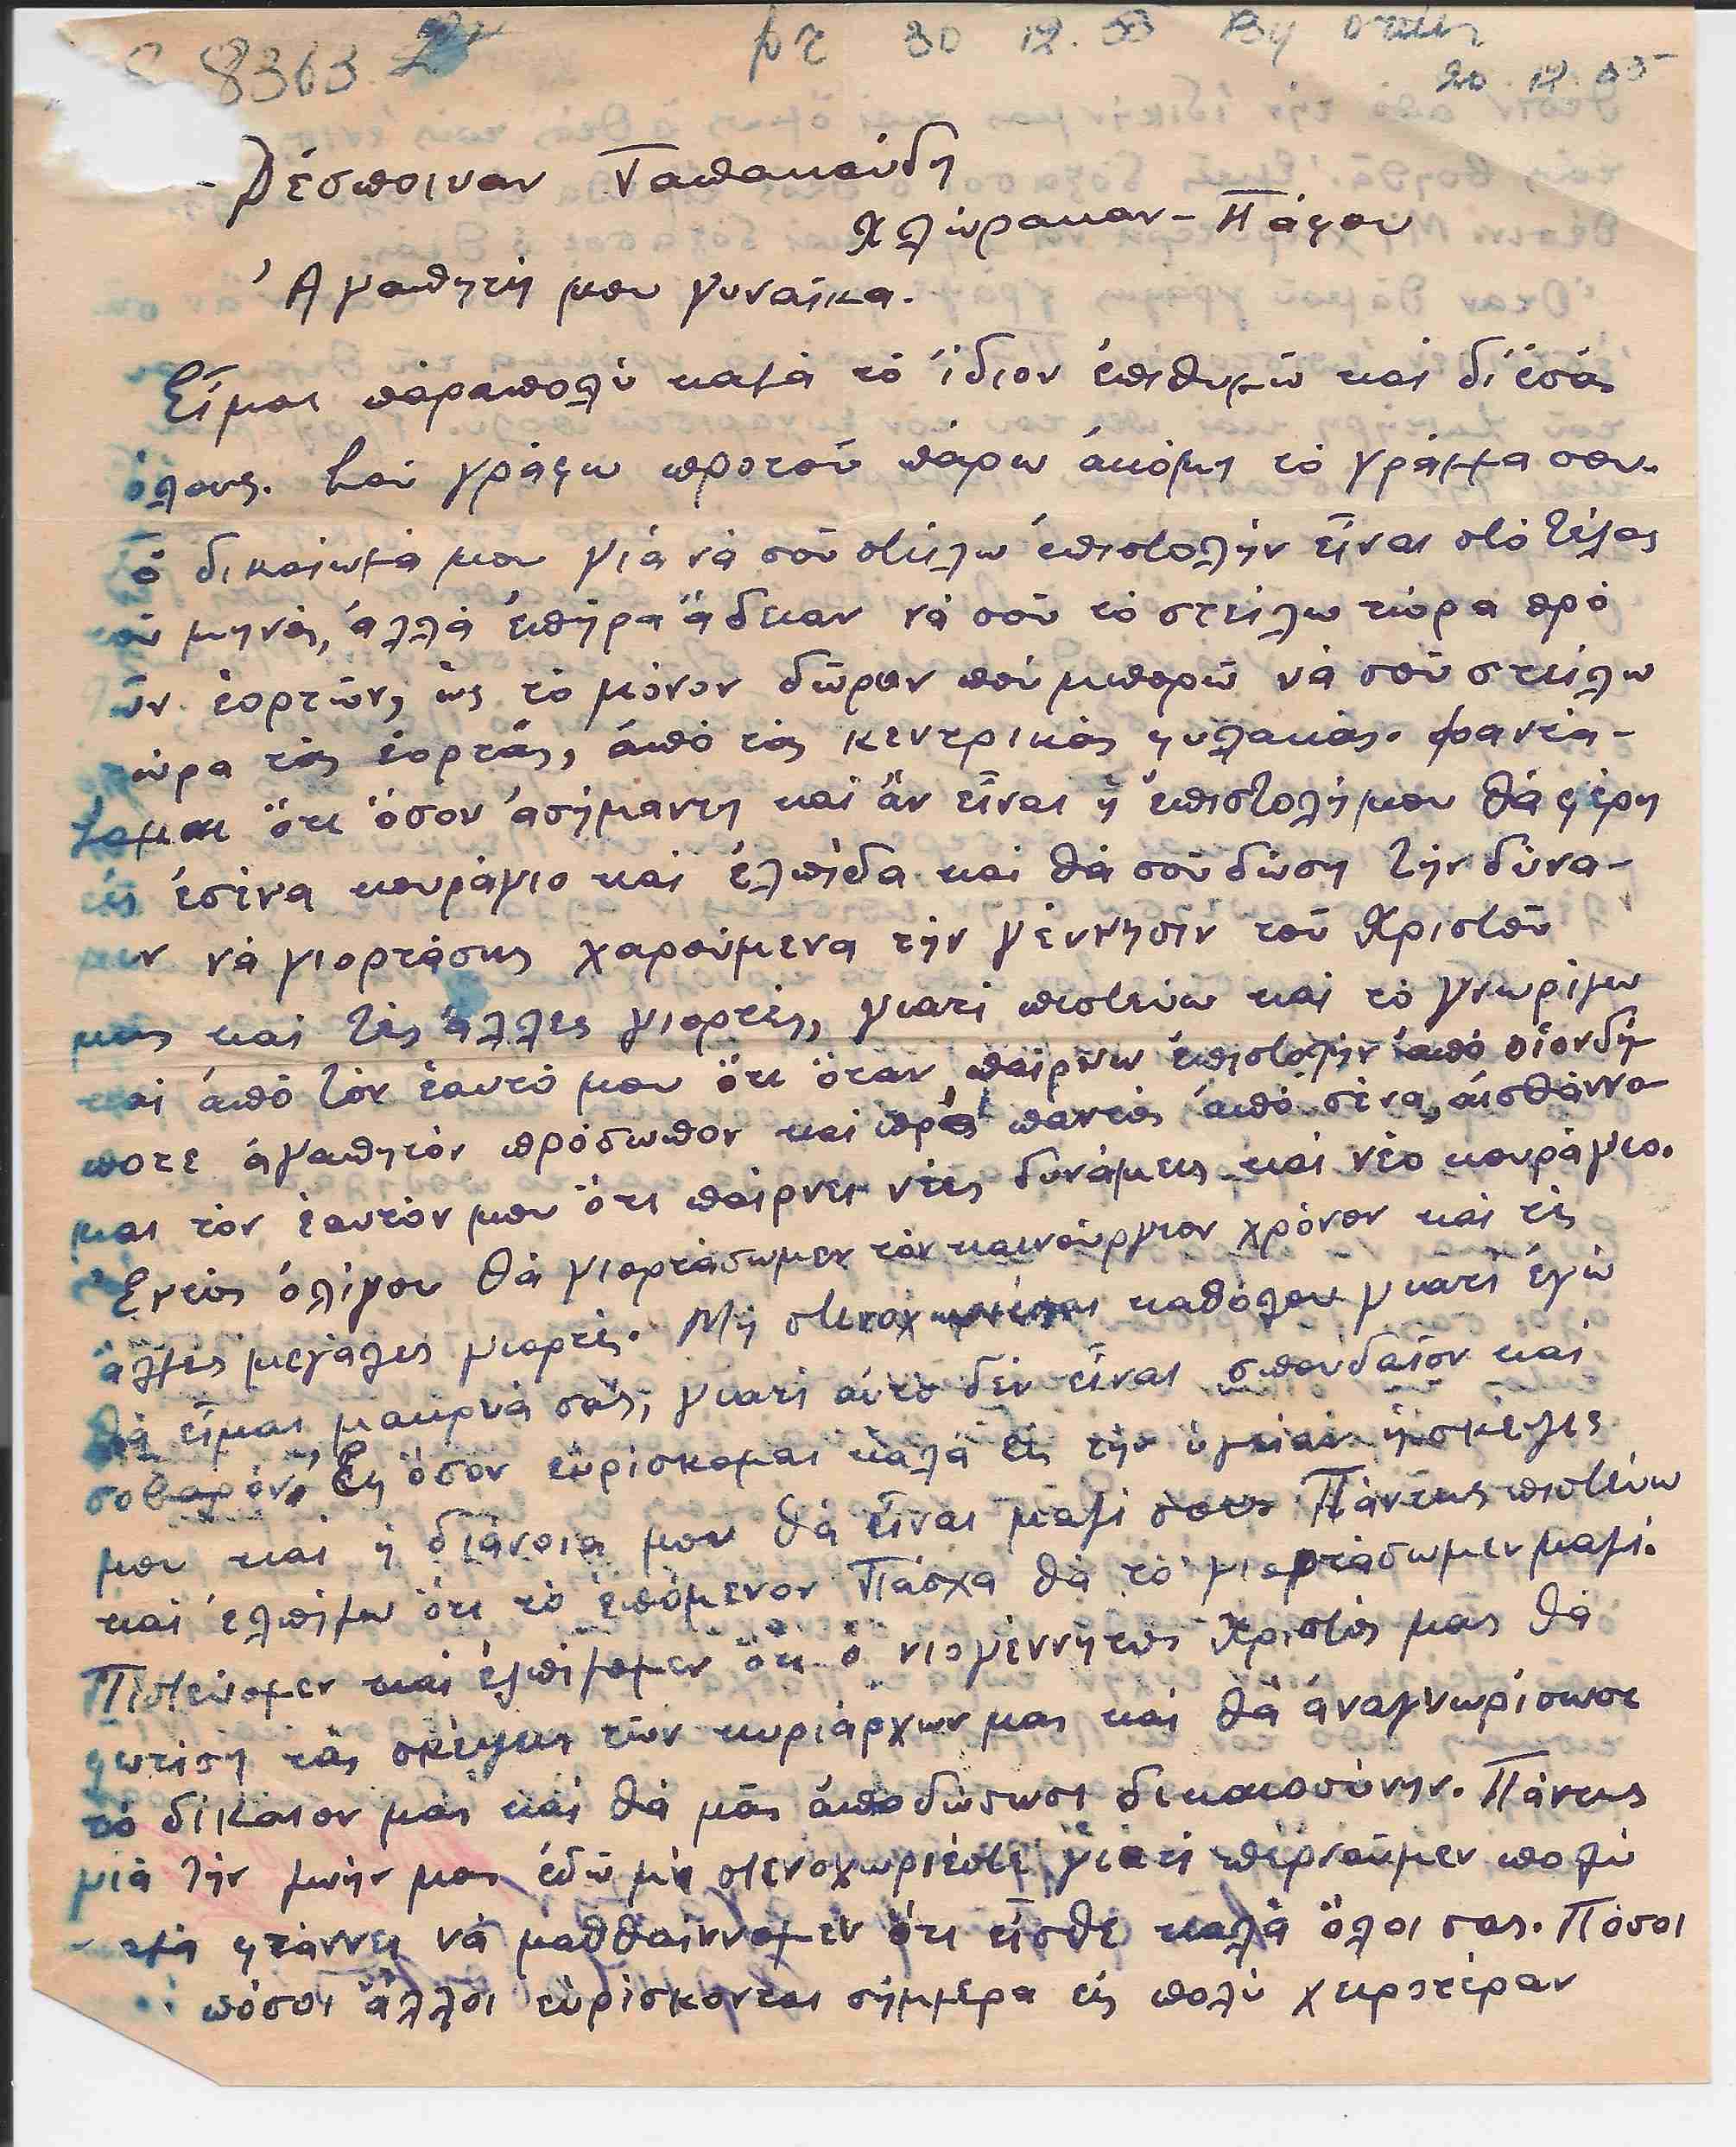 8363
30 12. 55 By
20. 12. 55
Δέσποιναν Ταπακούδη
Χλώρακαν - Πάφου
Ἀγαπητή μου γυναῖκα.
Εἶμαι πάραπολύ καλά τό ἴδιον ἐπιθυμῶ καί δι' ἐσᾶς
ὅλους. Σοῦ γράφω προτοῦ πάρω ἀκόμη τό γράμμα σου.
Τό δικαίωμά μου γιά νά σοῦ στείλω ἐπιστολήν εἶναι στό τέλος
τοῦ μηνός, ἀλλά ἐπῆρα ἄδειαν νά σοῦ τό στείλω τώρα πρό
τῶν ἑορτῶν, ὡς τό μόνον δῶρον πού μπορῶ νά σοῦ στείλω
τώρα τάς ἑορτάς, ἀπό τάς κεντρικάς φυλακάς. Φαντά-
ζομαι ὅτι ὅσον ἀσήμαντη καί ἄν εἶναι ἡ ἐπιστολή μου θά φέρη
εἰς ἐσένα κουράγιο καί ἐλπίδα καί θά σοῦ δώση τήν δύνα-
μιν νά γιορτάσης χαρούμενα τήν γέννησιν τοῦ Χριστοῦ
μας καί τές ἄλλες γιορτές, γιατί πιστεύω καί τό γνωρίζω
καί ἀπό τόν ἑαυτό μου ὅτι ὅταν παίρνω ἐπιστολήν ἀπό οἱονδή-
ποτε ἀγαπητόν πρόσωπον καί πρό παντός ἀπό σένα, αἰσθάννο-
μαι τόν ἑαυτόν μου ὅτι παίρνει νέες δυνάμεις καί νέο κουράγιο.
Ἐντός ὀλίγου θά γιορτάσωμεν τόν καινούργιον χρόνον καί τές
ἄλλες μεγάλες γιορτές. Μή στεναχωριέσαι καθόλου γιατί ἐγώ
θά εἶμαι μακρυά σας, γιατί αὐτό δέν εἶναι σπουδαῖον καί
σοβαρόν, Ἐφ ὅσον εὑρίσκομαι καλά εἰς τήν ὑγείαν ἡ σκέψις
μου καί ἡ διάνοια μου θά εἶναι μαζί σου Πάντως πιστεύω
καί ἐλπίζω ὅτι τό ἑπόμενον Πάσχα θά τό γιορτάσωμεν μαζί.
Πιστεύομεν καί ἐλπίζομεν ὅτι ὁ νιογέννητος Χριστός μας θά
φωτίση τάς σκέψεις τῶν κυριάρχων μας καί θά ἀναγνωρίσωσι
τό δίκαιον μας καί θά μᾶς ἀποδώσωσι δικαιοσύνην. Πάντως
γιά τήν ζωήν μας ἐδῶ μή στενοχωριέστε γιατί περνοῦμεν πολύ
καλά φτάννει νά μαθθαίννομεν ὅτι εἶσθε καλά ὅλοι σας. Πόσοι
πόσοι ἄλλοι εὑρίσκονται σήμμερα εἰς πολύ χειροτέραν